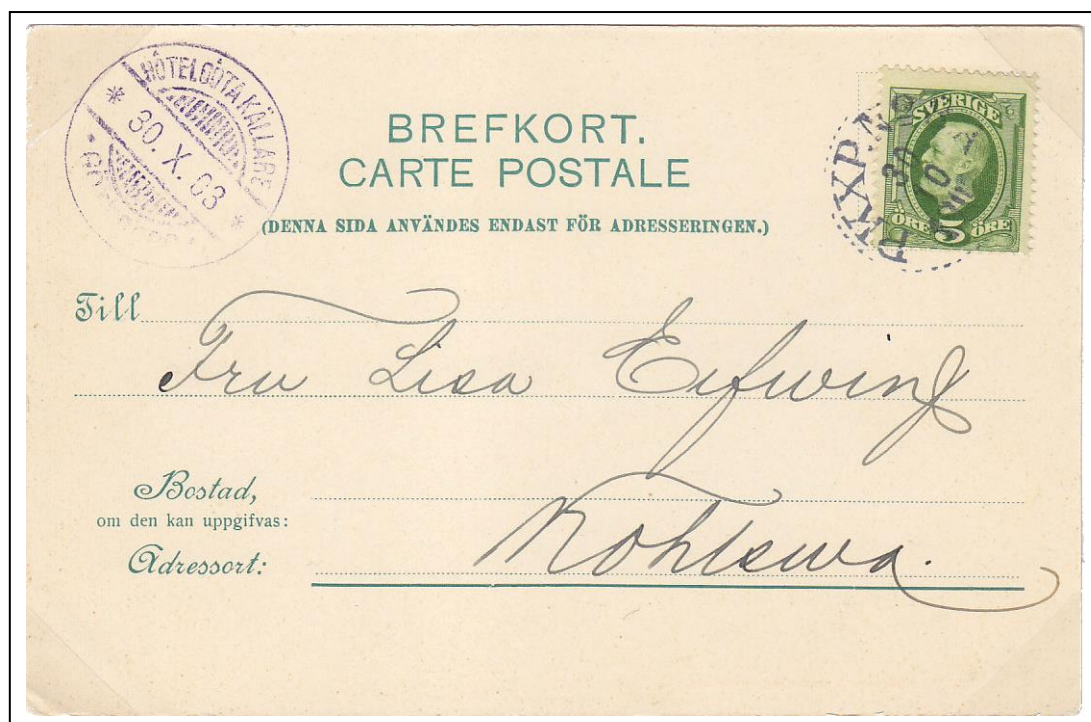 HÔTEL GÖTA KÄLLARE
* 30. X. 03 *
BREFKORT.
CARTE POSTALE
(DENNA SIDA ANVÄNDES ENDAST FÖR ADRESSERINGEN.)
SVERIGE
PKXP. Nº
30 10
ÖRE 5 ÖRE
Till
Fru Lisa Eifwing
Bostad,
om den kan uppgifvas:
Adressort:
Kohlswa.